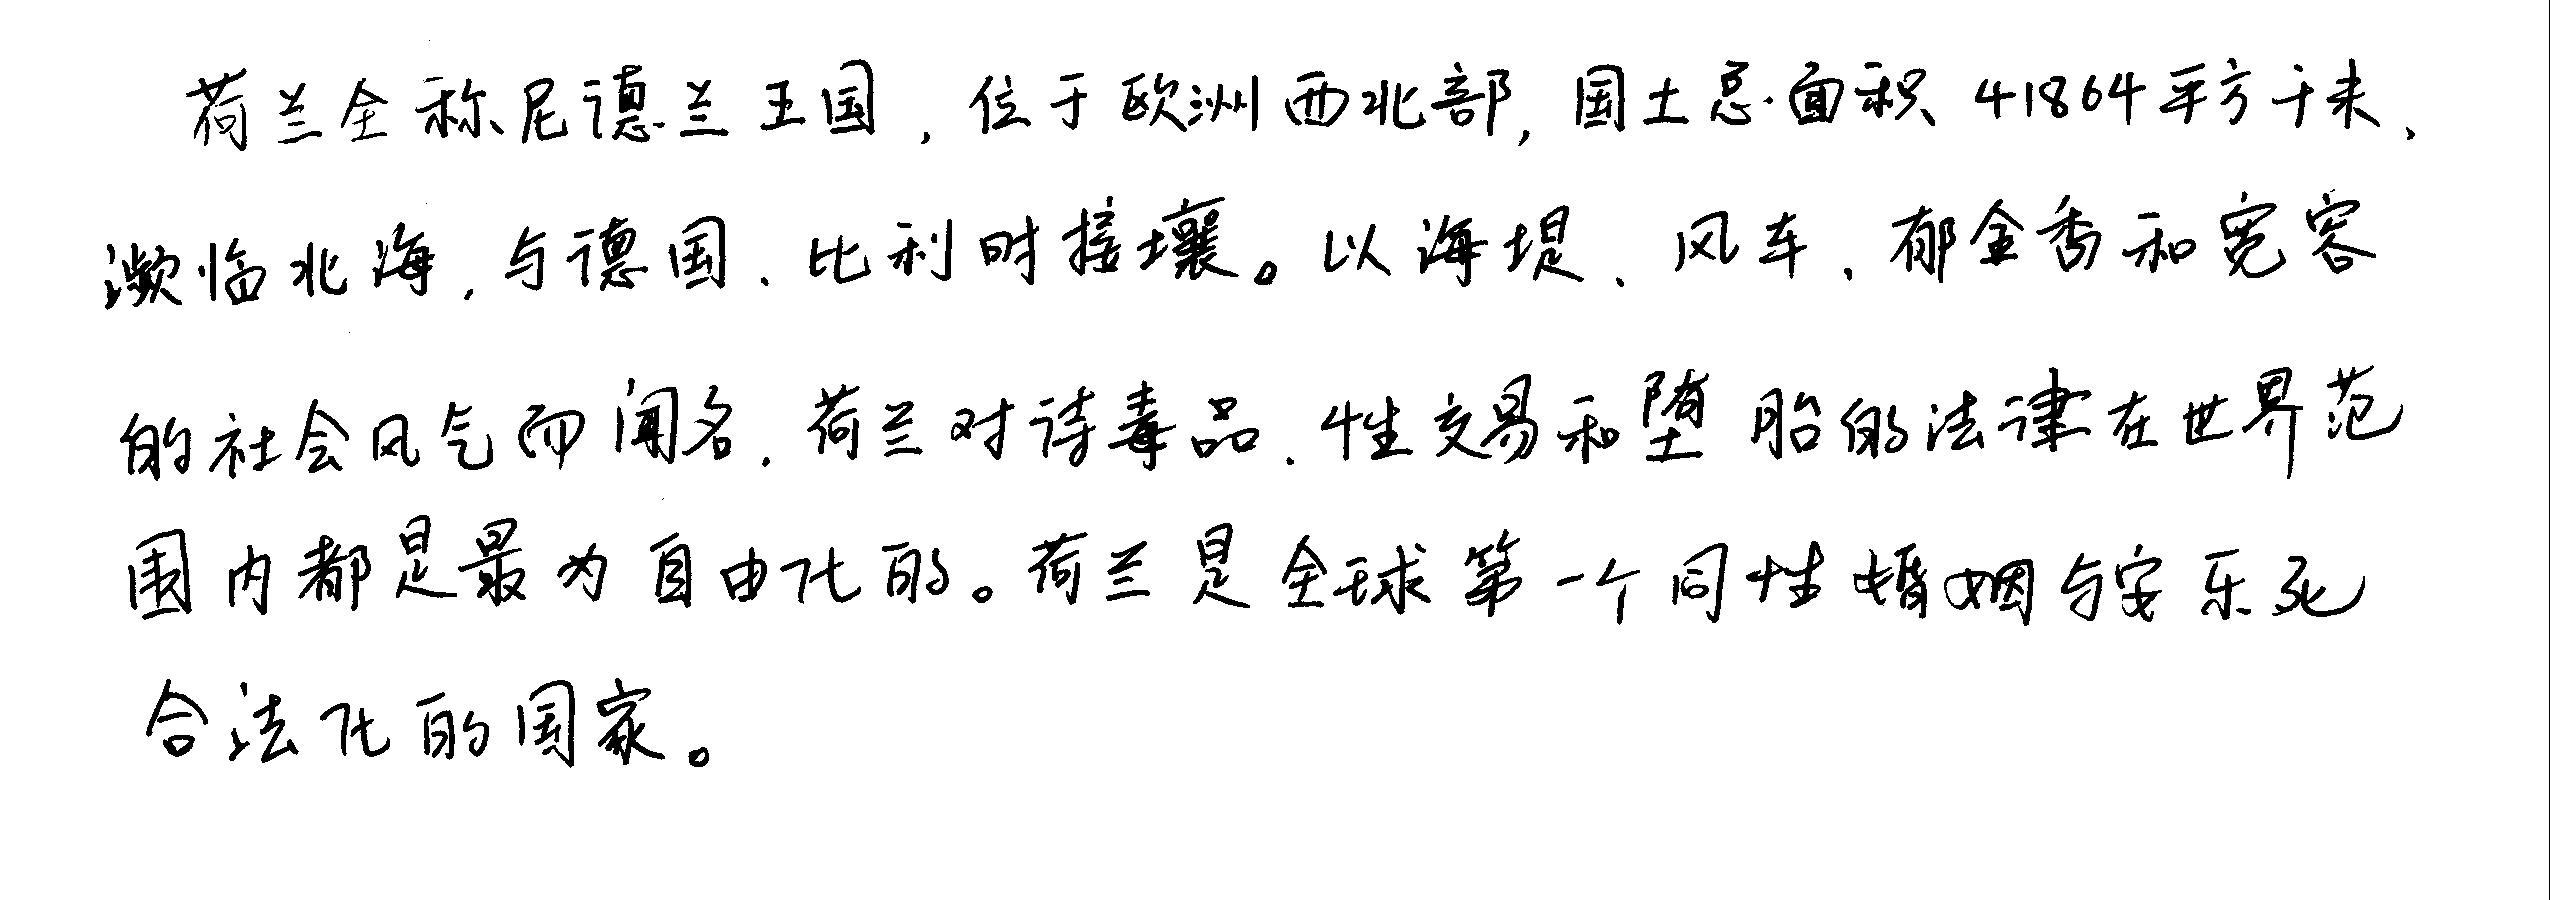 荷兰全称尼德兰王国，位于欧洲西北部，国土总面积41864平方千米，
濒临北海，与德国、比利时接壤。以海堤、风车、郁金香和宽容
的社会风气而闻名，荷兰对诗毒品、性交易和堕胎的法律在世界范
围内都是最为自由化的。荷兰是全球第一个同性婚姻与安乐死
合法化的国家。